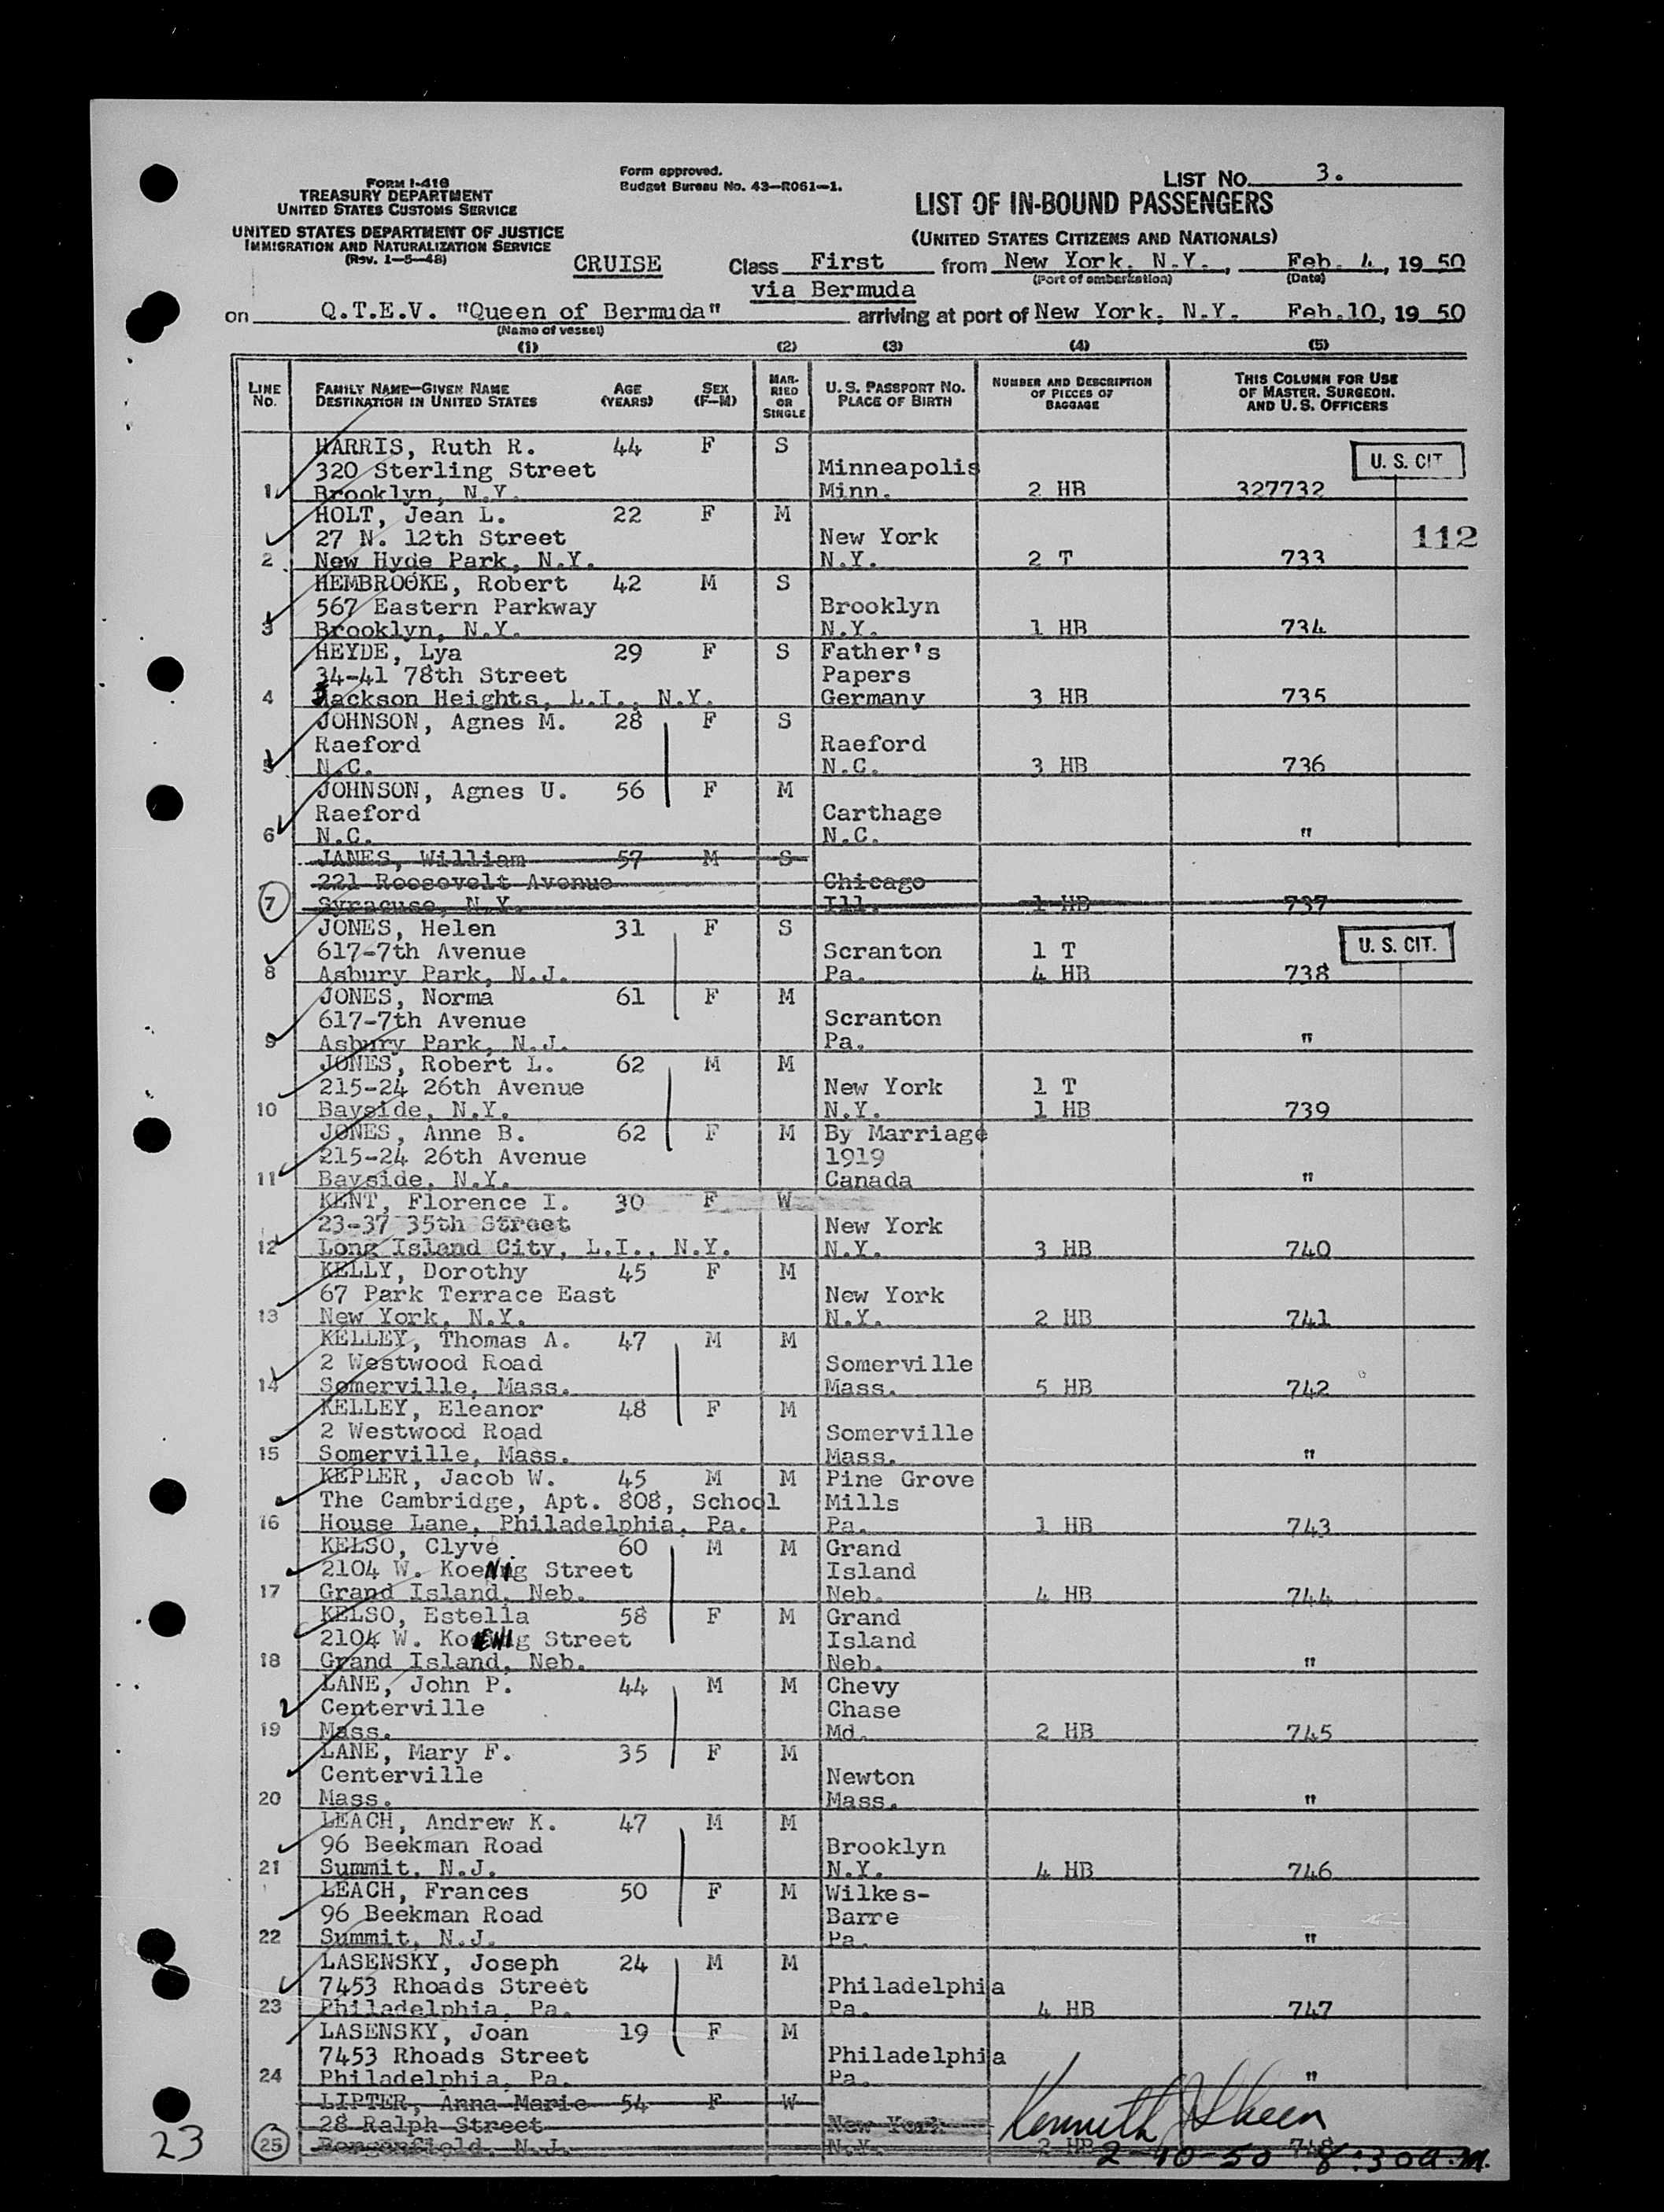 Form approved.
Budget Bureau No. 43—R061—1.
LIST NO. 3.
FORM I-418
TREASURY DEPARTMENT
UNITED STATES CUSTOMS SERVICE
UNITED STATES DEPARTMENT OF JUSTICE
IMMIGRATION AND NATURALIZATION SERVICE
(Rev. 1—5—48)
LIST OF IN-BOUND PASSENGERS
(UNITED STATES CITIZENS AND NATIONALS)
CRUISE Class First from New York, N.Y., Feb. 4, 19 50
(Port of embarkation) (Date)
via Bermuda
on Q.T.E.V. "Queen of Bermuda" arriving at port of New York, N.Y. Feb.10, 19 50
(Name of vessel)
(1) (2) (3) (4) (5)
LINE NO. FAMILY NAME—GIVEN NAME DESTINATION IN UNITED STATES AGE (YEARS) SEX (F—M) MARRIED OR SINGLE U. S. PASSPORT NO. PLACE OF BIRTH NUMBER AND DESCRIPTION OF PIECES OF BAGGAGE THIS COLUMN FOR USE OF MASTER, SURGEON, AND U. S. OFFICERS
HARRIS, Ruth R. 44 F S U. S. CIT
320 Sterling Street Minneapolis
1 Brooklyn, N.Y. Minn. 2 HB 327732
HOLT, Jean L. 22 F M
27 N. 12th Street New York 112
2 New Hyde Park, N.Y. N.Y. 2 T 733
HEMBROOKE, Robert 42 M S
567 Eastern Parkway Brooklyn
3 Brooklyn, N.Y. N.Y. 1 HB 734
HEYDE, Lya 29 F S Father's
34-41 78th Street Papers
4 Jackson Heights, L.I., N.Y. Germany 3 HB 735
JOHNSON, Agnes M. 28 F S
Raeford Raeford
5 N.C. N.C. 3 HB 736
JOHNSON, Agnes U. 56 F M
Raeford Carthage
6 N.C. N.C. "
JANES, William 57 M S
221 Roosevelt Avenue Chicago
7 Syracuse, N.Y. Ill. 1 HB 737
JONES, Helen 31 F S U. S. CIT.
617-7th Avenue Scranton 1 T
8 Asbury Park, N.J. Pa. 4 HB 738
JONES, Norma 61 F M
617-7th Avenue Scranton
9 Asbury Park, N.J. Pa. "
JONES, Robert L. 62 M M
215-24 26th Avenue New York 1 T
10 Bayside, N.Y. N.Y. 1 HB 739
JONES, Anne B. 62 F M By Marriage
215-24 26th Avenue 1919
11 Bayside, N.Y. Canada "
KENT, Florence I. 30 F W
23-37 35th Street New York
12 Long Island City, L.I., N.Y. N.Y. 3 HB 740
KELLY, Dorothy 45 F M
67 Park Terrace East New York
13 New York, N.Y. N.Y. 2 HB 741
KELLEY, Thomas A. 47 M M
2 Westwood Road Somerville
14 Somerville, Mass. Mass. 5 HB 742
KELLEY, Eleanor 48 F M
2 Westwood Road Somerville
15 Somerville, Mass. Mass. "
KEPLER, Jacob W. 45 M M Pine Grove
The Cambridge, Apt. 808, School Mills
16 House Lane, Philadelphia, Pa. Pa. 1 HB 743
KELSO, Clyve 60 M M Grand
2104 W. Koenig Street Island
17 Grand Island, Neb. Neb. 4 HB 744
KELSO, Estella 58 F M Grand
2104 W. Koenig Street Island
18 Grand Island, Neb. Neb. "
LANE, John P. 44 M M Chevy
Centerville Chase
19 Mass. Md. 2 HB 745
LANE, Mary F. 35 F M
Centerville Newton
20 Mass. Mass. "
LEACH, Andrew K. 47 M M
96 Beekman Road Brooklyn
21 Summit, N.J. N.Y. 4 HB 746
LEACH, Frances 50 F M Wilkes-
96 Beekman Road Barre
22 Summit, N.J. Pa. "
LASENSKY, Joseph 24 M M
7453 Rhoads Street Philadelphia
23 Philadelphia, Pa. Pa. 4 HB 747
LASENSKY, Joan 19 F M
7453 Rhoads Street Philadelphia
24 Philadelphia, Pa. Pa. "
LIPTER, Anna Marie 54 F W
28 Ralph Street New York Kenneth
23 25 Bergenfield, N.J. N.Y. 2 HB 748
2-10-50 8:30a.m.